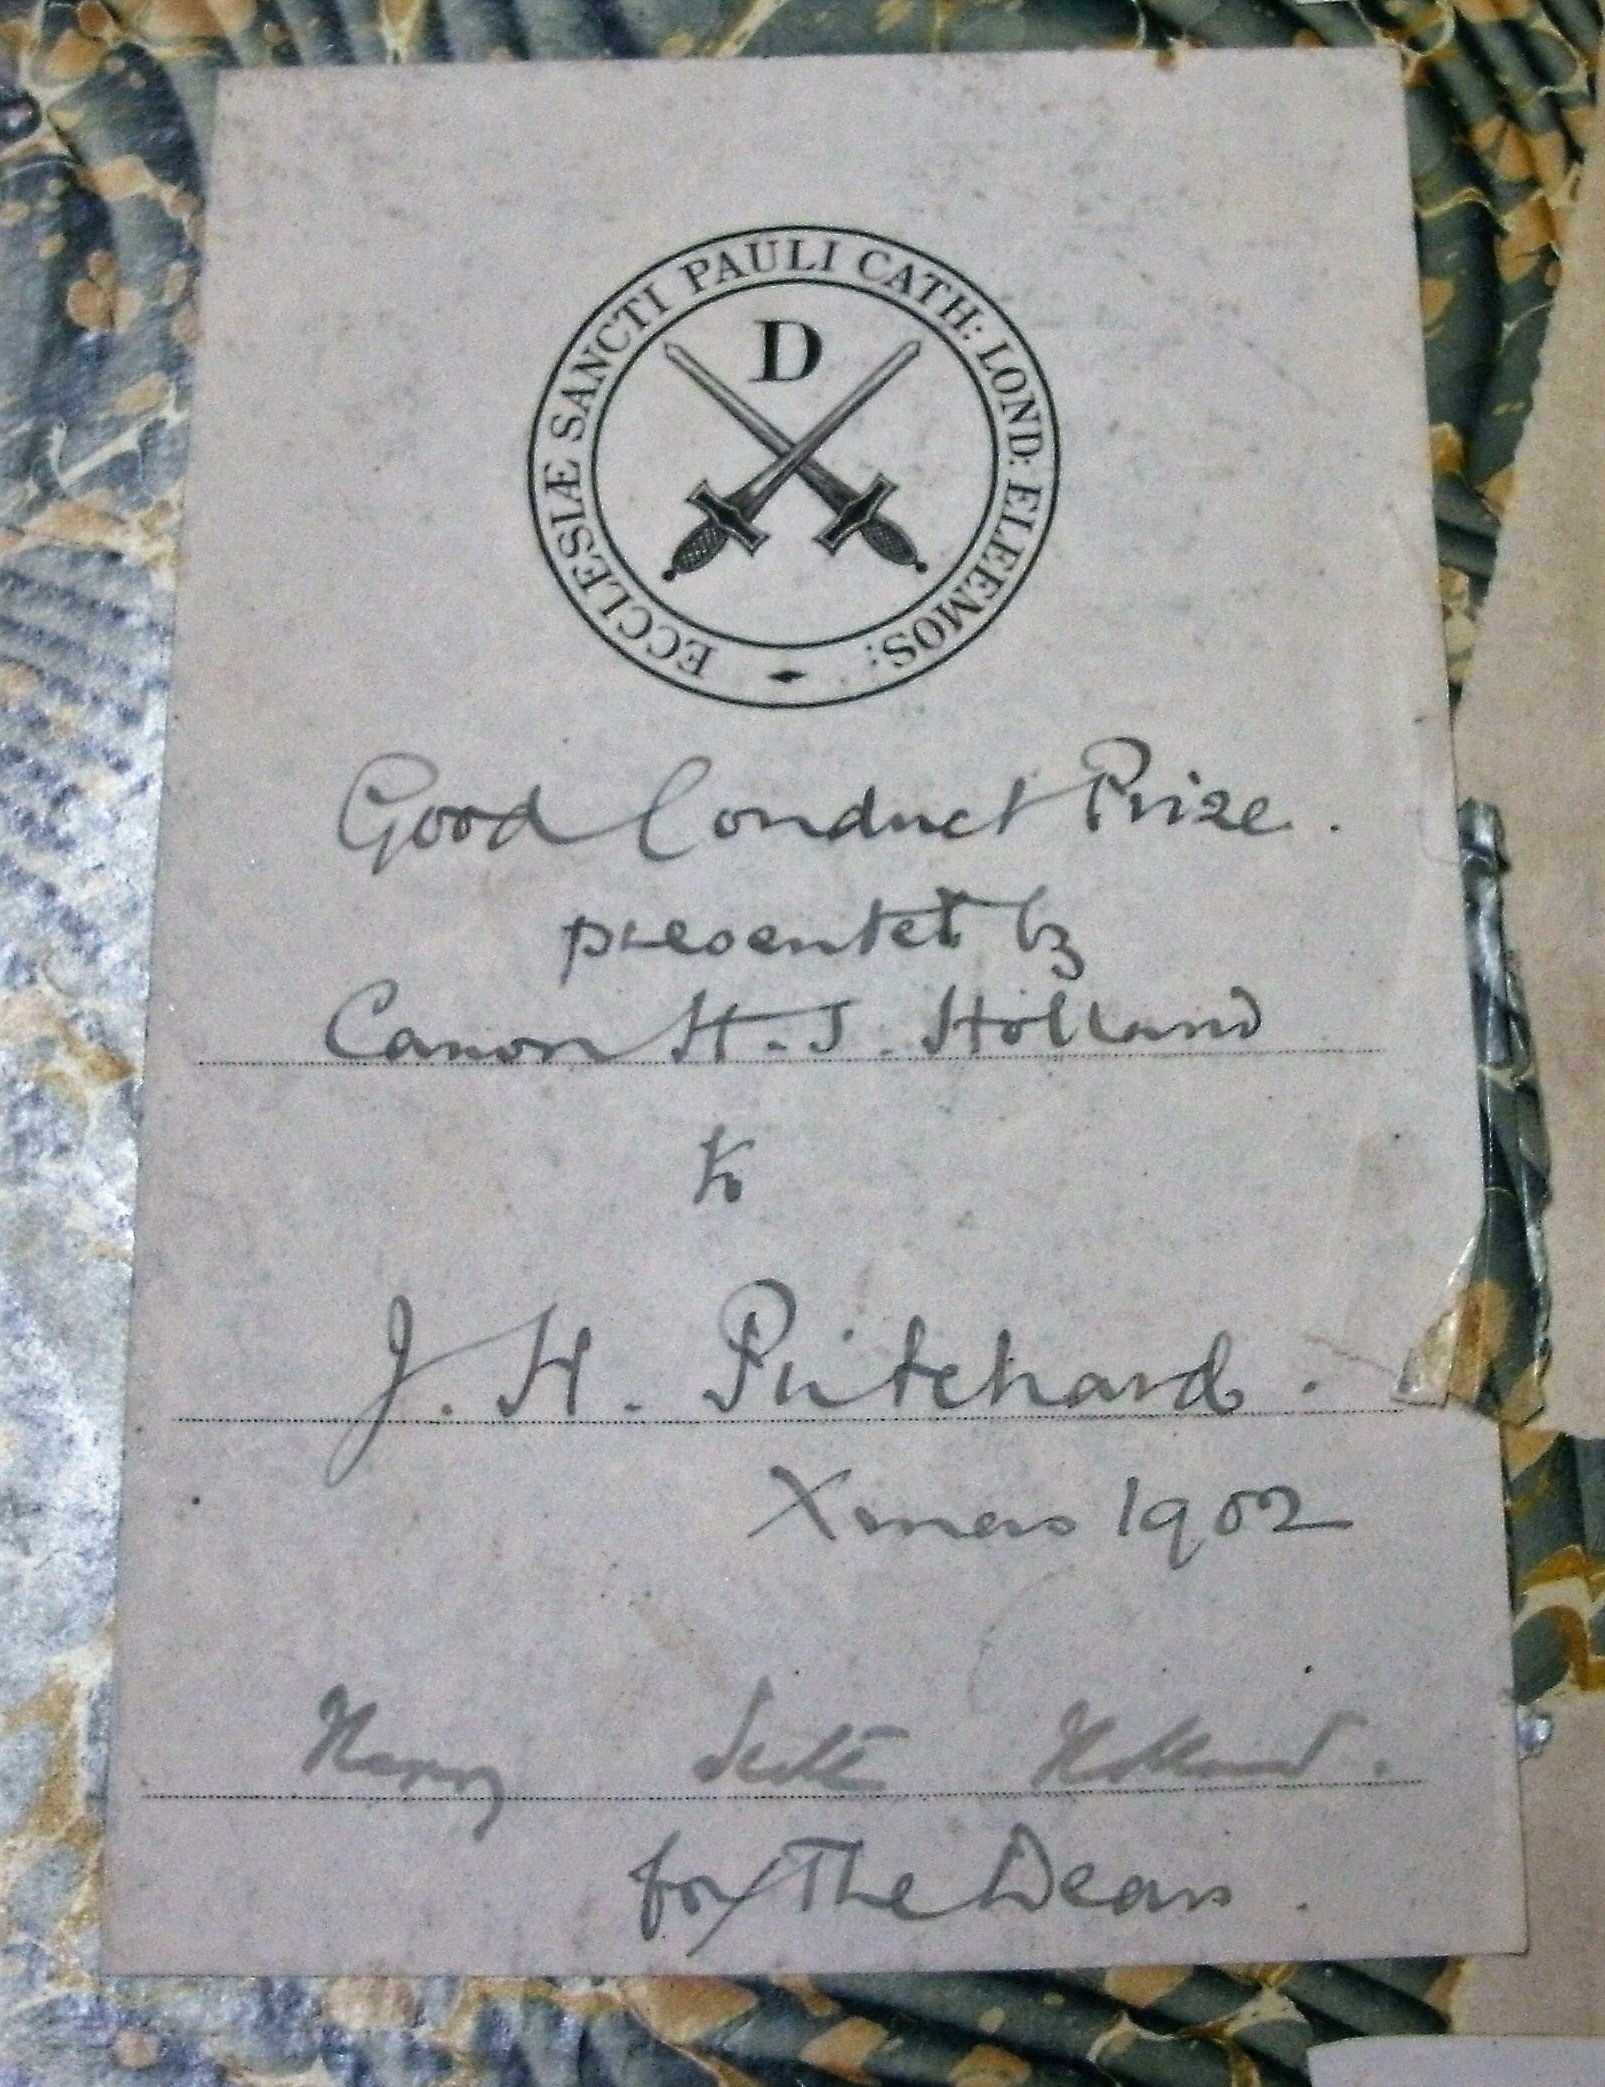 ECCLESIÆ SANCTI PAULI CATH: LOND: ELEEMOS:
D
Good Conduct Prize.
presented by
Canon H. S. Holland
to
J. H. Pritchard.
Xmas 1902
Henry Scott Holland.
for The Dean.